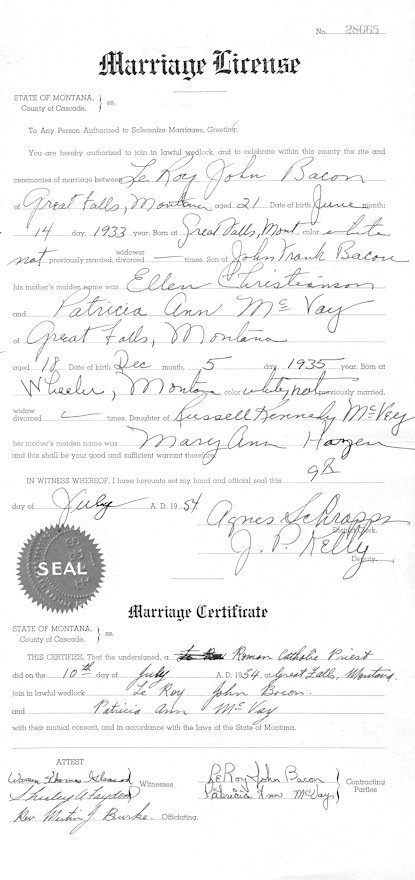 No. 28665
Marriage License
STATE OF MONTANA, } ss.
County of Cascade.
To Any Person Authorized to Solemnize Marriages, Greeting:
You are hereby authorized to join in lawful wedlock, and to celebrate within this county the rite and
ceremonies of marriage between Le Roy John Bacon
of Great Falls, Montana aged 21 Date of birth June month;
14 day, 1933 year. Born at Great Falls, Mont, color white
not previously married, widower divorced — times. Son of John Frank Bacon
his mother's maiden name was Ellen Christianson
and Patricia Ann McVay
of Great Falls, Montana
aged 18 Date of birth Dec month, 5 day, 1935 year. Born at
Wheeler, Montana color white, not previously married,
widow divorced — times. Daughter of Russell Kennedy McVey
her mother's maiden name was Mary Ann
and this shall be your good and sufficient warrant therefor.
IN WITNESS WHEREOF, I have hereunto set my hand and official seal this
day of July A. D. 1954
Agnes
Clerk.
J. P. Kelly
Deputy.
SEAL
Marriage Certificate
STATE OF MONTANA, } ss.
County of Cascade.
THIS CERTIFIES, That the undersigned, a Roman Catholic Priest
did on the 10th day of July A. D. 1954, at Great Falls, Montana,
join in lawful wedlock Le Roy John Bacon.
and Patricia Ann McVay
with their mutual consent, and in accordance with the laws of the State of Montana.
ATTEST
Thomas
Shirley A
Witnesses
LeRoy John Bacon
Patricia Ann McVay
Contracting Parties
Rev. J. Burke. Officiating.